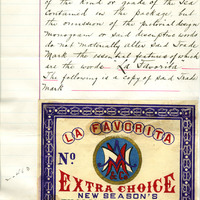 of the kind or grade of the Tea
contained in the package but
the omission of the pictorial design
Monogram or said descriptive words
do not materially alter said Trade
Mark the essential features of which
are the words La Favorita
The following is a copy of said Trade
Mark
LA FAVORITA
No
EXTRA CHOICE
NEW SEASON'S